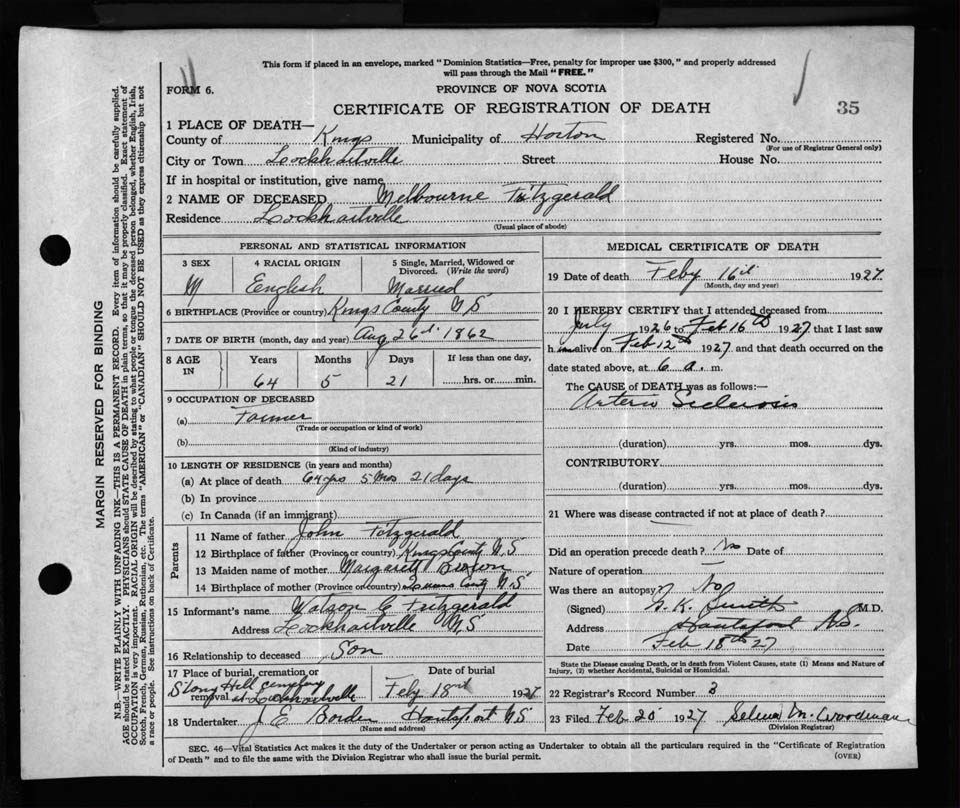 This form if placed in an envelope, marked "Dominion Statistics—Free, penalty for improper use $300," and properly addressed
will pass through the Mail "FREE."
FORM 6.
PROVINCE OF NOVA SCOTIA
CERTIFICATE OF REGISTRATION OF DEATH
35
1 PLACE OF DEATH—
County of Kings Municipality of Horton Registered No.
(For use of Registrar General only)
City or Town Lockhartville Street House No.
If in hospital or institution, give name
2 NAME OF DECEASED Melbourne Fitzgerald
Residence Lockhartville
(Usual place of abode)
PERSONAL AND STATISTICAL INFORMATION
3 SEX 4 RACIAL ORIGIN 5 Single, Married, Widowed or
Divorced. (Write the word)
M English Married
6 BIRTHPLACE (Province or country) Kings County N.S
7 DATE OF BIRTH (month, day and year) Aug 26th 1862
8 AGE IN Years Months Days If less than one day,
64 5 21 hrs. or min.
9 OCCUPATION OF DECEASED
(a) Farmer
(Trade or occupation or kind of work)
(b)
(Kind of industry)
10 LENGTH OF RESIDENCE (in years and months)
(a) At place of death 64 yrs 5 Mos 21 days
(b) In province
(c) In Canada (if an immigrant)
Parents
11 Name of father John Fitzgerald
12 Birthplace of father (Province or country) Kings County N.S
13 Maiden name of mother Margarett
14 Birthplace of mother (Province or country) County N.S
15 Informant's name Watson C Fitzgerald
Address Lockhartville N.S
16 Relationship to deceased Son
17 Place of burial, cremation or removal Date of burial
Hill Cemetery
at Lockhartville Feby 18th 1927
18 Undertaker J. E Borden Hantsport N.S
(Name and address)
MEDICAL CERTIFICATE OF DEATH
19 Date of death Feby 16th 1927
(Month, day and year)
20 I HEREBY CERTIFY that I attended deceased from
July 1926 to Feb 16th 1927, that I last saw
h im alive on Feb 12th 1927 and that death occurred on the
date stated above, at 6 a. m.
The CAUSE of DEATH was as follows:—
Arterio Sclerosis
(duration) yrs. mos. dys.
CONTRIBUTORY
(duration) yrs. mos. dys.
21 Where was disease contracted if not at place of death?
Did an operation precede death? No Date of
Nature of operation
Was there an autopsy? No
(Signed) K. Smith M.D.
Address Hantsport N.S.
Date Feb 18th 27
State the Disease causing Death, or in death from Violent Causes, state (1) Means and Nature of
Injury, (2) whether Accidental, Suicidal or Homicidal.
22 Registrar's Record Number 3
23 Filed Feb 20 1927 Selena M. Woodman
(Division Registrar)
SEC. 46—Vital Statistics Act makes it the duty of the Undertaker or person acting as Undertaker to obtain all the particulars required in the "Certificate of Registration
of Death" and to file the same with the Division Registrar who shall issue the burial permit.
(OVER)
MARGIN RESERVED FOR BINDING
N.B.—WRITE PLAINLY, WITH UNFADING INK—THIS IS A PERMANENT RECORD. Every item of information should be carefully supplied.
AGE should be stated EXACTLY. PHYSICIANS should STATE CAUSE OF DEATH in plain terms, so that it may be properly classified. Exact statement of
OCCUPATION is very important. RACIAL ORIGIN will be described by stating to what people or tongue the deceased person belonged, whether English, Irish,
Scotch, French, German, Russian, Ruthenian, etc. The terms "AMERICAN" or "CANADIAN" SHOULD NOT BE USED as they express citizenship but not
a race or people. See instructions on back of Certificate.